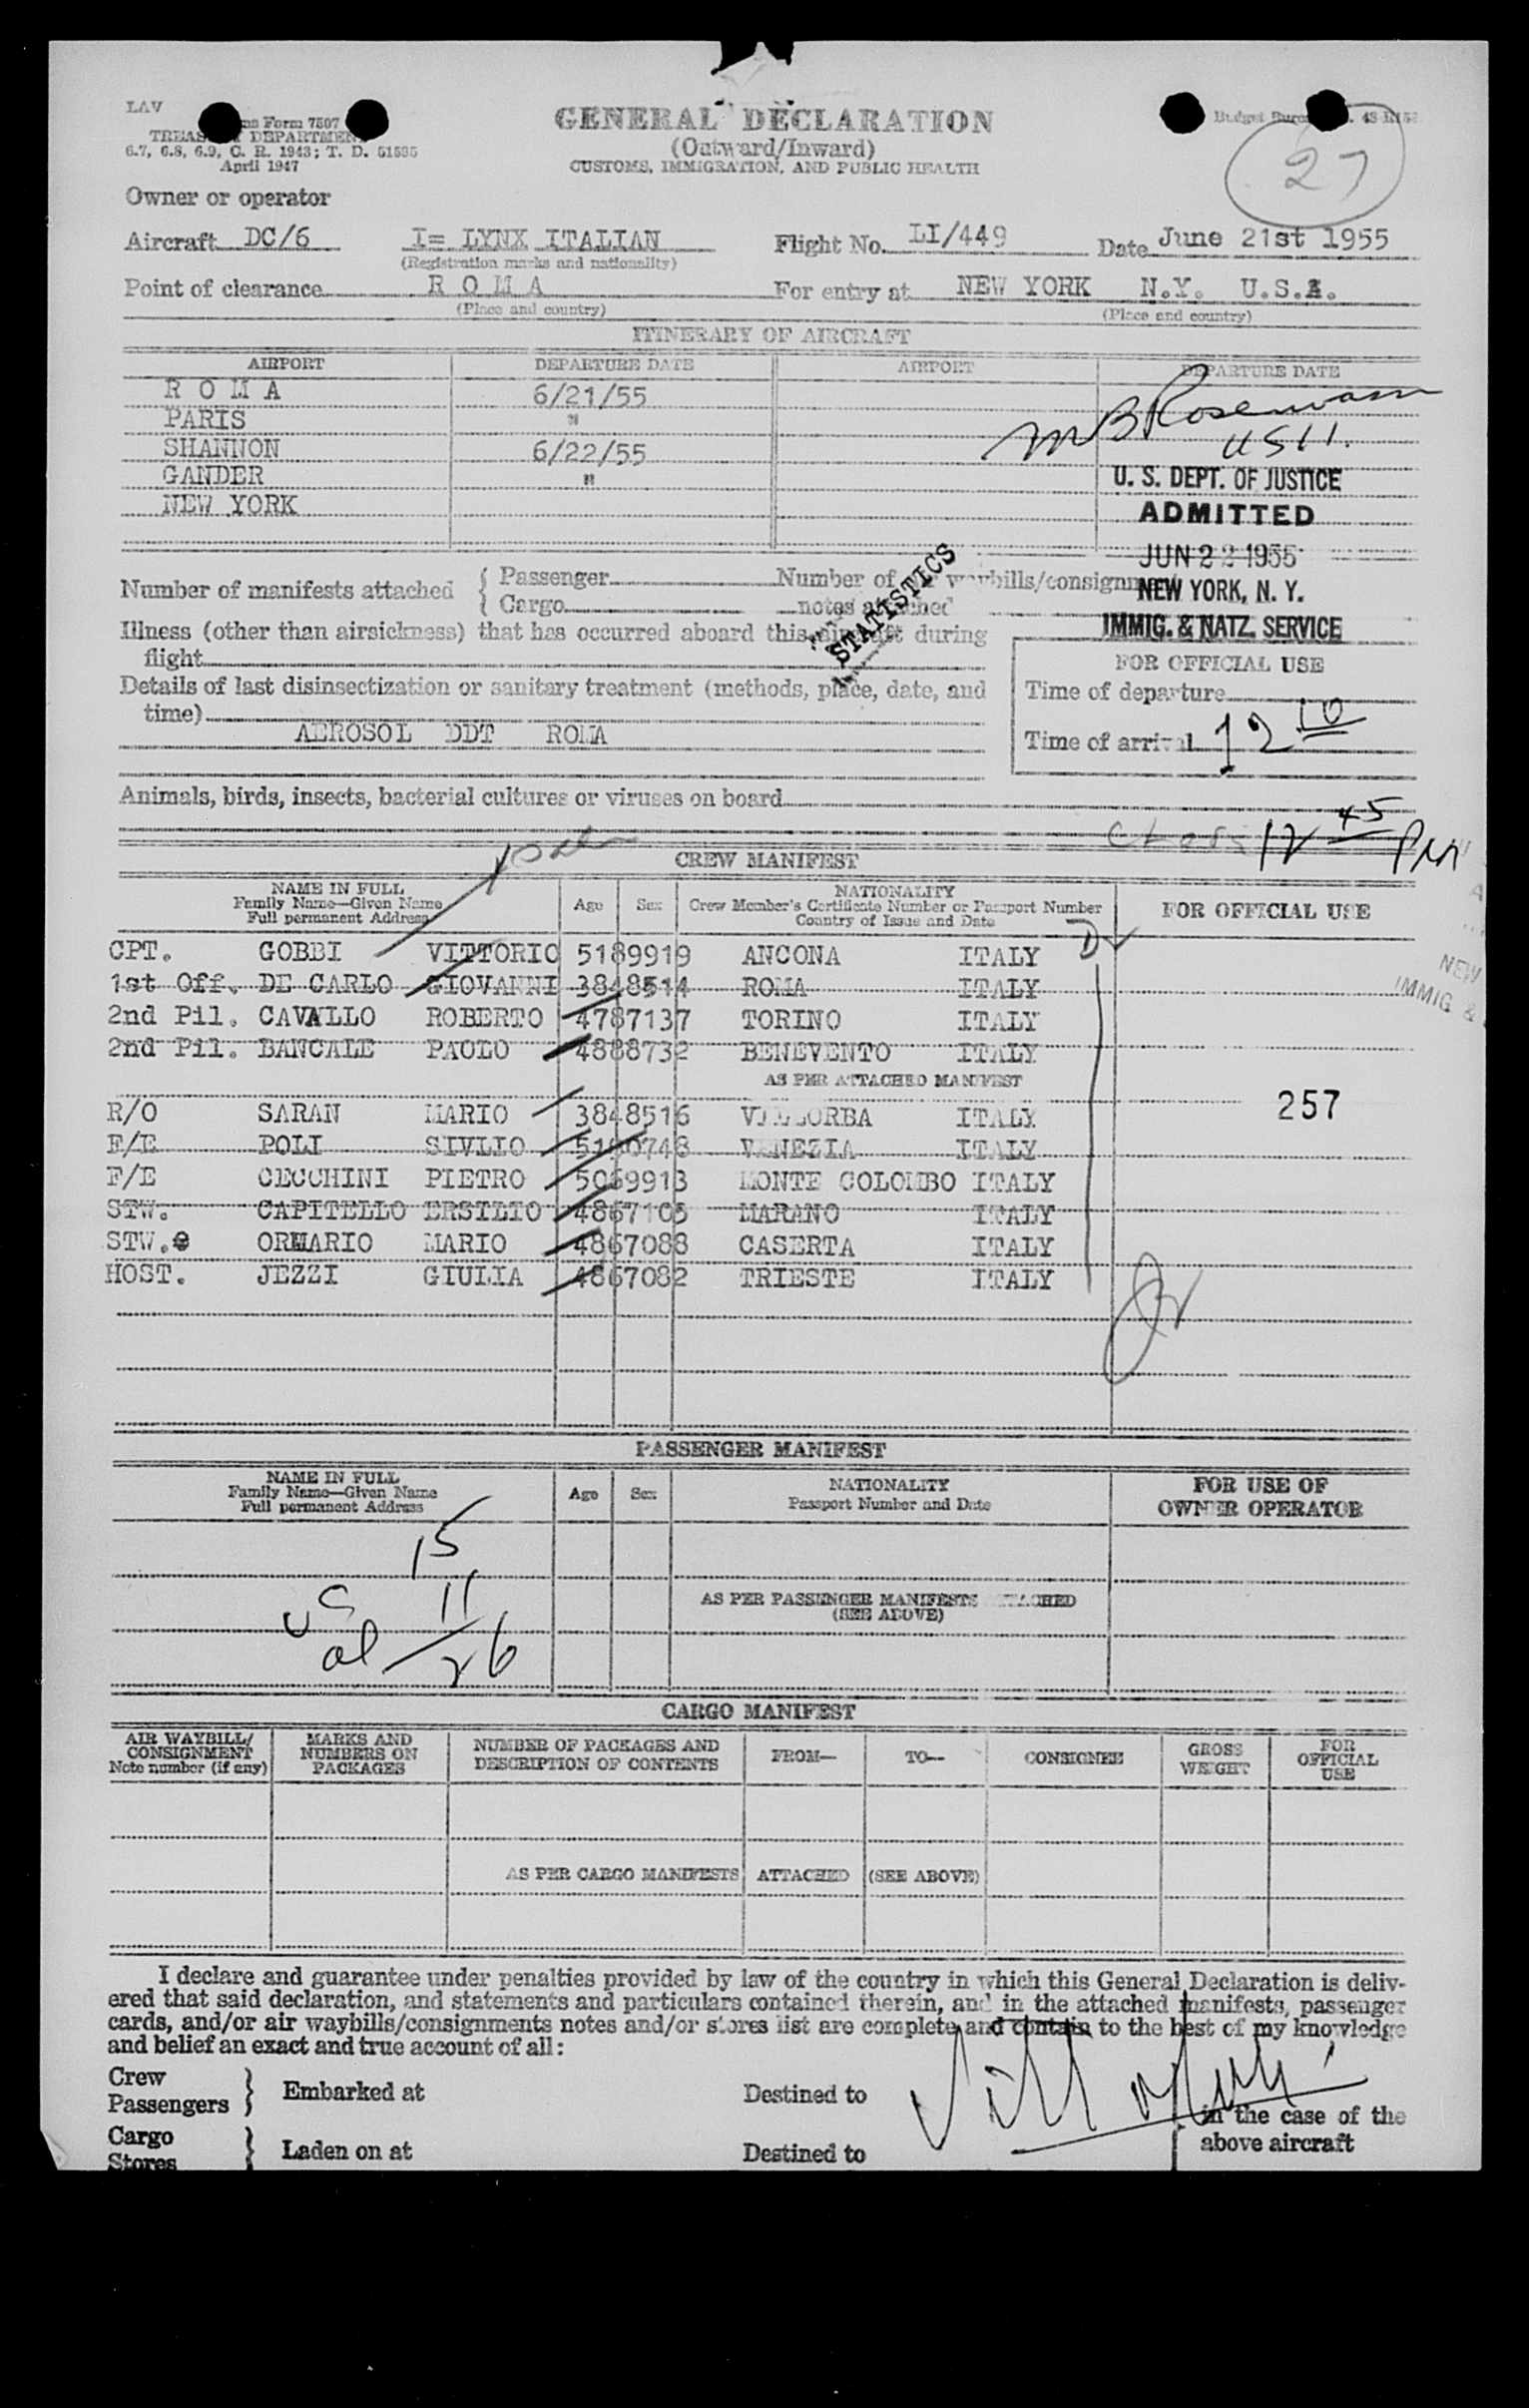 LAV
ns Form 7507
TREAS DEPARTMENT
6.7, 6.8, 6.9, C. R. 1943; T. D. 51535
April 1947
GENERAL DECLARATION
(Outward/Inward)
CUSTOMS, IMMIGRATION, AND PUBLIC HEALTH
Budget
27
Owner or operator
Aircraft DC/6 I= LYNX ITALIAN Flight No. LI/449 Date June 21st 1955
(Registration marks and nationality)
Point of clearance R O M A For entry at NEW YORK N.Y. U.S.A.
(Place and country) (Place and country)
ITINERARY OF AIRCRAFT
AIRPORT DEPARTURE DATE AIRPORT DEPARTURE DATE
R O M A 6/21/55
PARIS "
SHANNON 6/22/55
GANDER "
NEW YORK
U. S. DEPT. OF JUSTICE
ADMITTED
JUN 22 1955
NEW YORK, N. Y.
IMMIG. & NATZ. SERVICE
STATISTICS
Number of manifests attached { Passenger Number of waybills/consignment
Cargo notes attached
Illness (other than airsickness) that has occurred aboard this aircraft during
flight
FOR OFFICIAL USE
Details of last disinsectization or sanitary treatment (methods, place, date, and
time)
AEROSOL DDT ROMA
Time of departure
Time of arrival 12 10
Animals, birds, insects, bacterial cultures or viruses on board
12 45 PM
CREW MANIFEST
NAME IN FULL
Family Name—Given Name
Full permanent Address
Age Sex
NATIONALITY
Crew Member's Certificate Number or Passport Number
Country of Issue and Date
FOR OFFICIAL USE
CPT. GOBBI VITTORIO 5189919 ANCONA ITALY
1st Off. DE CARLO GIOVANNI 3848514 ROMA ITALY
2nd Pil. CAVALLO ROBERTO 4787137 TORINO ITALY
2nd Pil. BANCALE PAOLO 4888732 BENEVENTO ITALY
AS PER ATTACHED MANIFEST
257
R/O SARAN MARIO 3848516 VILLORBA ITALY
F/E POLI SIVLIO 5190748 VENEZIA ITALY
F/E CECCHINI PIETRO 5069913 MONTE COLOMBO ITALY
STW. CAPITELLO ERSILIO 4867105 MARANO ITALY
STW. ORMARIO MARIO 4867088 CASERTA ITALY
HOST. JEZZI GIULIA 4867082 TRIESTE ITALY
NEW
IMMIG &
PASSENGER MANIFEST
NAME IN FULL
Family Name—Given Name
Full permanent Address
Age Sex
NATIONALITY
Passport Number and Date
FOR USE OF
OWNER OPERATOR
15
UC 11
al 26
AS PER PASSENGER MANIFESTS ATTACHED
(SEE ABOVE)
CARGO MANIFEST
AIR WAYBILL/
CONSIGNMENT
Note number (if any)
MARKS AND
NUMBERS ON
PACKAGES
NUMBER OF PACKAGES AND
DESCRIPTION OF CONTENTS
FROM— TO— CONSIGNEE
GROSS
WEIGHT
FOR
OFFICIAL
USE
AS PER CARGO MANIFESTS ATTACHED (SEE ABOVE)
I declare and guarantee under penalties provided by law of the country in which this General Declaration is deliv-
ered that said declaration, and statements and particulars contained therein, and in the attached manifests, passenger
cards, and/or air waybills/consignments notes and/or stores list are complete and contain to the best of my knowledge
and belief an exact and true account of all:
Crew
Passengers } Embarked at Destined to
in the case of the
above aircraft
Cargo
Stores } Laden on at Destined to